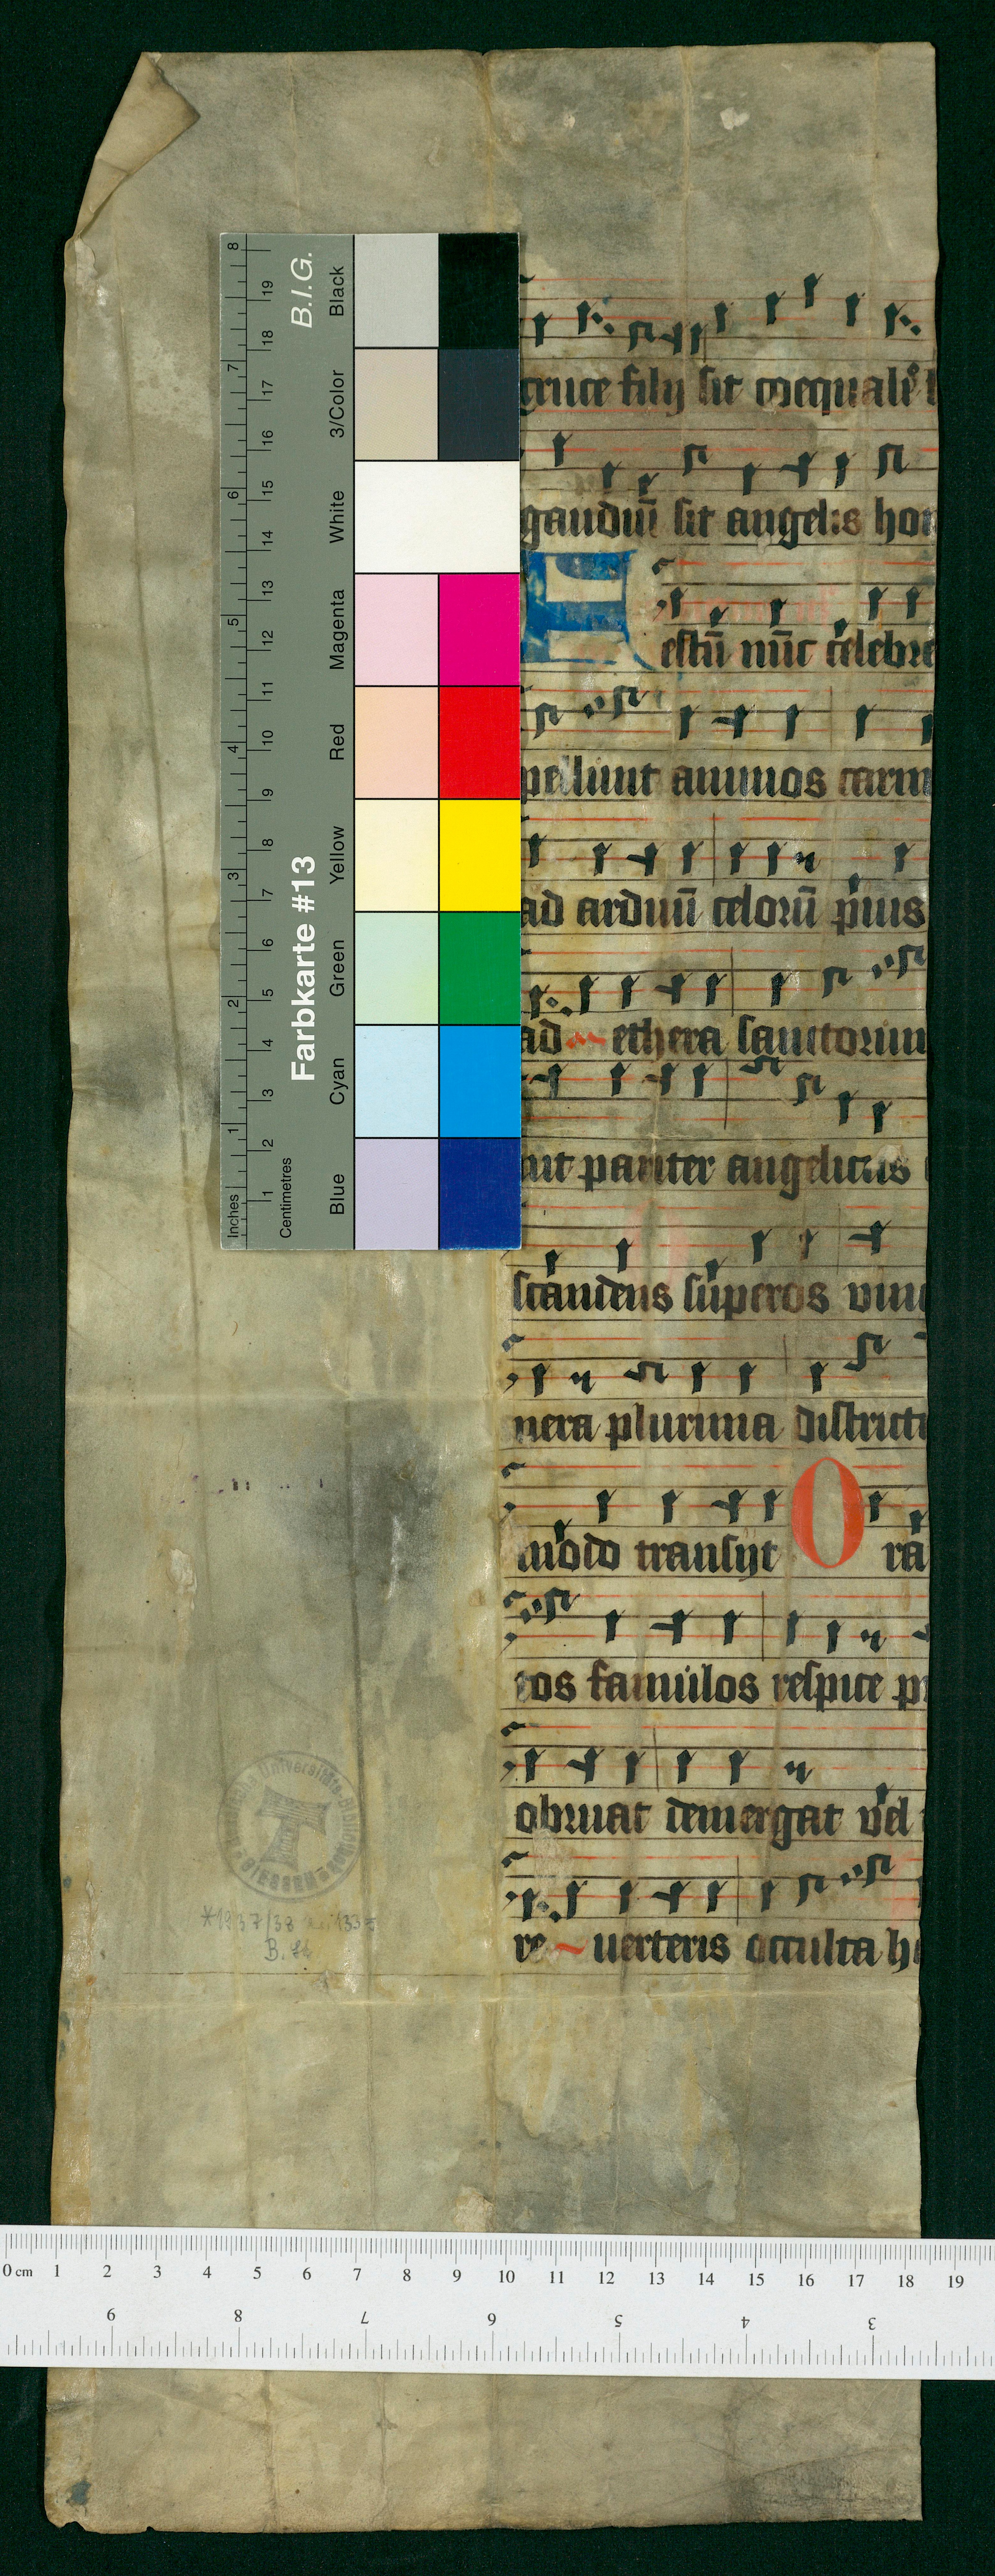 cruce filij sit coequalis
gaudiū sit angelis hom
Festū nūc celebre
pellunt animos carm
ad arduū celorū pius
ad ethera sanctorum
uit pariter angelicus
scandens superos vin
nera plurima districti
modo transijt Ora
tos famulos respice pr
obruat demergat vel
re uerteris occulta h
B.I.G.
Farbkarte #13
Black
3/Color
White
Magenta
Red
Yellow
Green
Cyan
Blue
Inches
Centimetres
1 2 3 4 5 6 7 8
1 2 3 4 5 6 7 8 9 10 11 12 13 14 15 16 17 18 19
Universitäts-Bibliothek
GIESSEN
0 cm 1 2 3 4 5 6 7 8 9 10 11 12 13 14 15 16 17 18 19
9 8 7 6 5 4 3